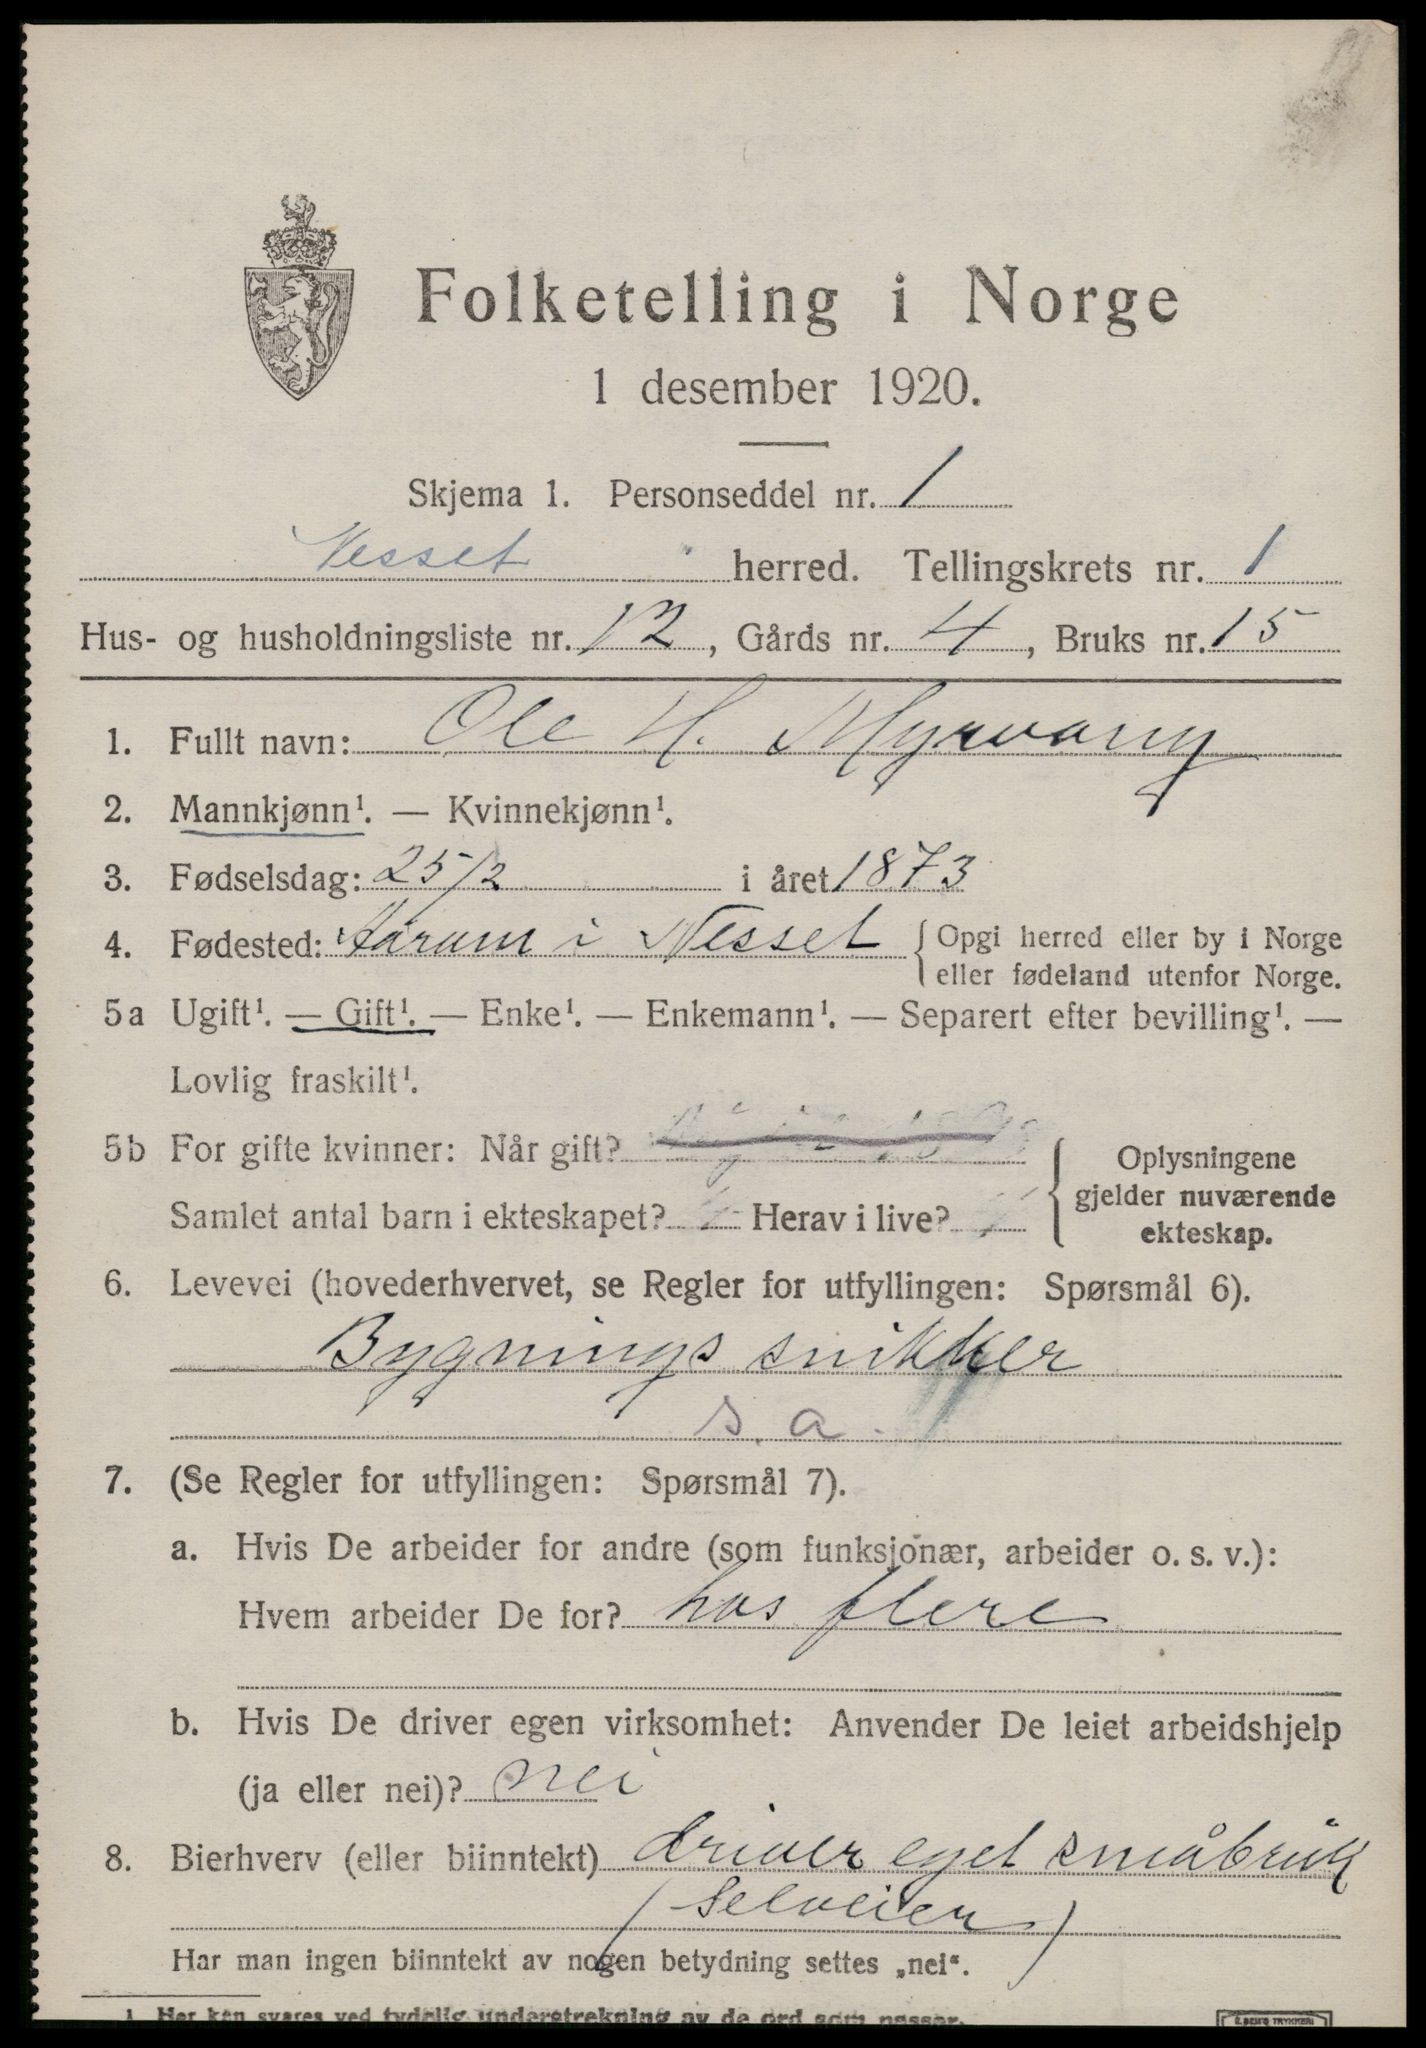 Folketelling i Norge
1 desember 1920.
Skjema 1. Personseddel nr. 1
Nesset herred. Tellingskrets nr. 1
Hus- og husholdningsliste nr. 12, Gårds nr. 4, Bruks nr. 15
1. Fullt navn: Ole H. Myrvang
2. Mannkjønn¹. — Kvinnekjønn¹.
3. Fødselsdag: 25/2 i året 1873
4. Fødested: i Nesset { Opgi herred eller by i Norge
eller fødeland utenfor Norge.
5a Ugift¹. — Gift¹. — Enke¹. — Enkemann¹. — Separert efter bevilling¹. —
Lovlig fraskilt¹.
5b For gifte kvinner: Når gift?
Samlet antal barn i ekteskapet? Herav i live?
Oplysningene
gjelder nuværende
ekteskap.
6. Levevei (hovederhvervet, se Regler for utfyllingen: Spørsmål 6).
Bygnings snikker
s. a.
7. (Se Regler for utfyllingen: Spørsmål 7).
a. Hvis De arbeider for andre (som funksjonær, arbeider o. s. v.):
Hvem arbeider De for? hos flere
b. Hvis De driver egen virksomhet: Anvender De leiet arbeidshjelp
(ja eller nei)? nei
8. Bierhverv (eller biinntekt) driver eget småbruk
(selveier)
Har man ingen biinntekt av nogen betydning settes „nei“.
1. Her kan svares ved tydelig understrekning av de ord som passer.